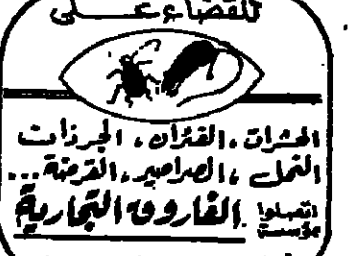 للقضاء عـــلى
الحشرات، الفئران، الجرذان
النمل، الصراصير، القرضة...
اتصلوا بمؤسسة الفاروق التجارية